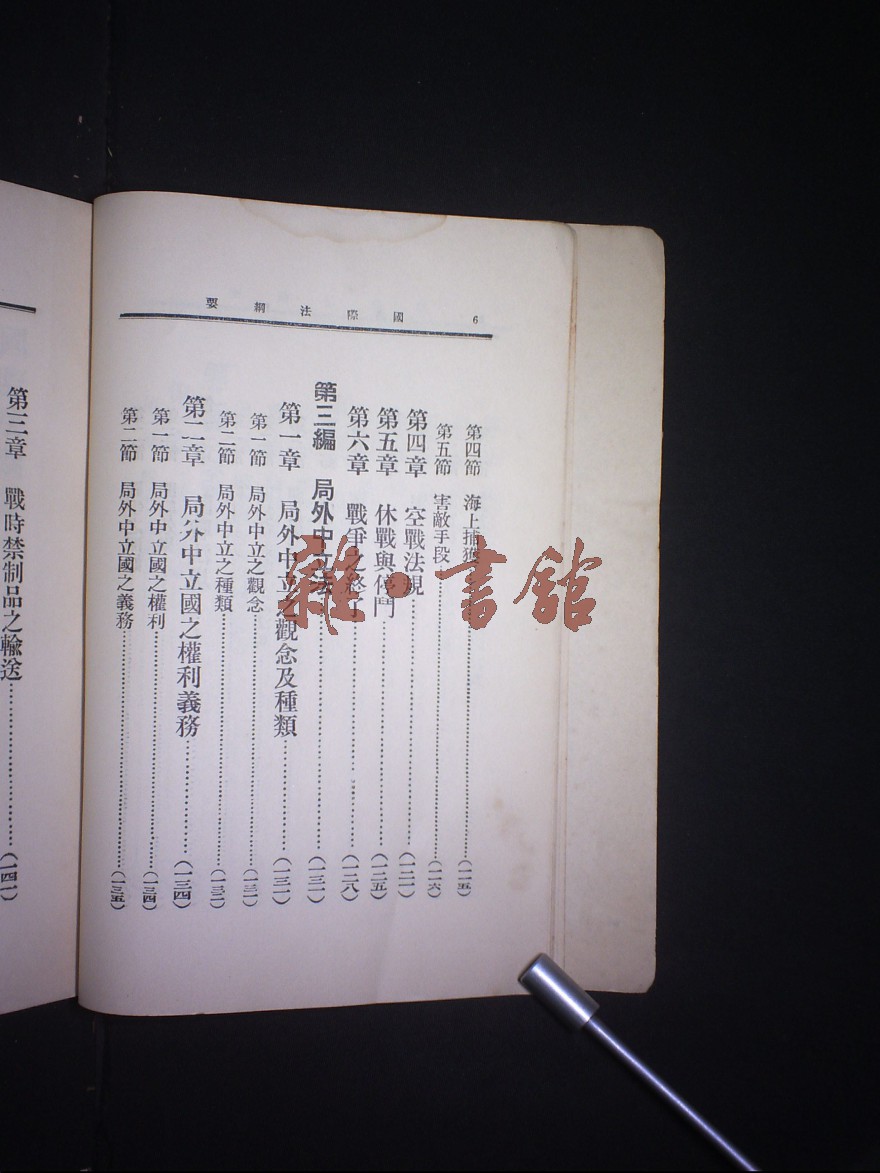 國際法綱要 6
第四節 海上捕獲……(一一五)
第五節 害敵手段……(一一六)
第四章 空戰法規……(一二一)
第五章 休戰與停鬥……(一二五)
第六章 戰爭之終了……(一二八)
第三編 局外中立法……(一三一)
第一章 局外中立之觀念及種類……(一三一)
第一節 局外中立之觀念……(一三一)
第二節 局外中立之種類……(一三二)
第二章 局外中立國之權利義務……(一三四)
第一節 局外中立國之權利……(一三四)
第二節 局外中立國之義務……(一三五)
第三章 戰時禁制品之輸送……(一四一)
雜·書館